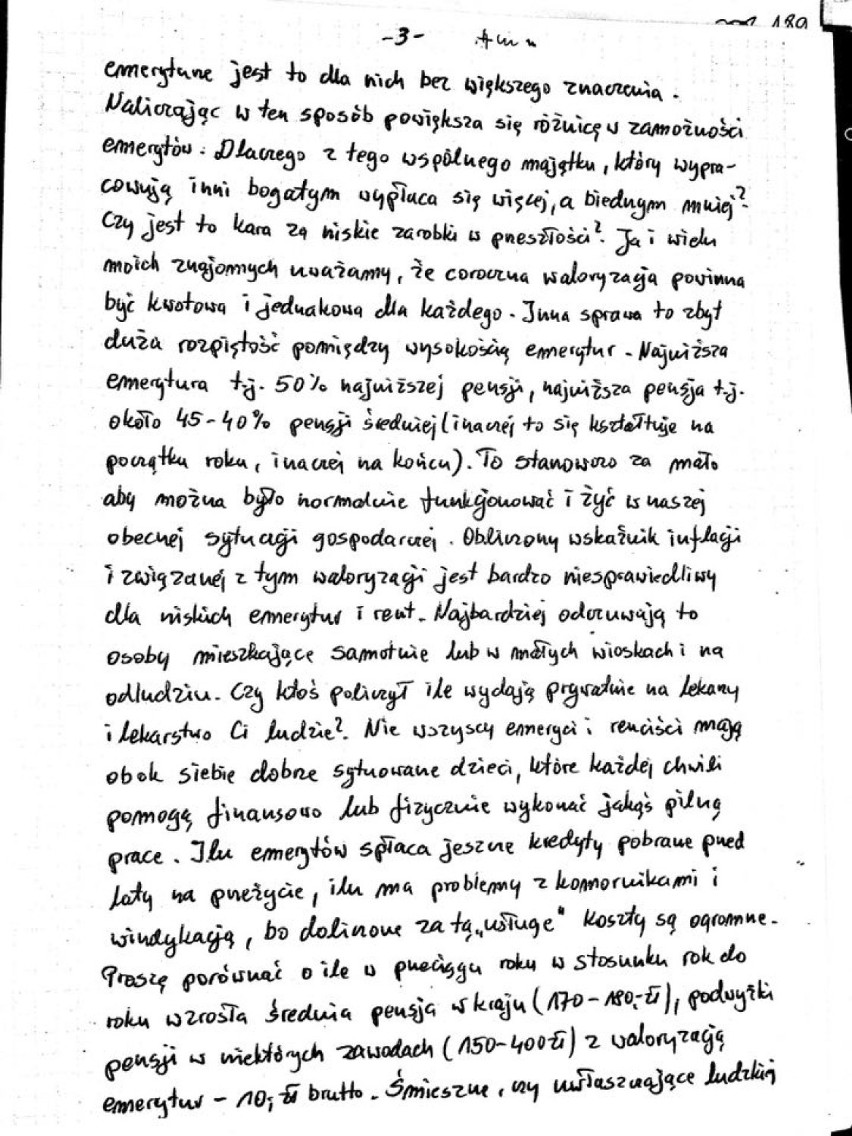 189
-3-
emerytalne jest to dla nich bez większego znaczenia.
Naliczając w ten sposób powiększa się różnicę w zamożności
emerytów. Dlaczego z tego wspólnego majątku, który wypra-
cowują inni bogatym wypłaca się więcej, a biednym mniej?
Czy jest to kara za niskie zarobki w przeszłości? Ja i wielu
moich znajomych uważamy, że coroczna waloryzacja powinna
być kwotowa i jednakowa dla każdego. Inna sprawa to zbyt
duża rozpiętość pomiędzy wysokością emerytur. Najniższa
emerytura t.j. 50% najniższej pensji, najniższa pensja t.j.
około 45-40% pensji średniej (inaczej to się kształtuje na
początku roku, inaczej na końcu). To stanowczo za mało
aby można było normalnie funkcjonować i żyć w naszej
obecnej sytuacji gospodarczej. Obliczony wskaźnik inflacji
i związanej z tym waloryzacji jest bardzo niesprawiedliwy
dla niskich emerytur i rent. Najbardziej odczuwają to
osoby mieszkające samotnie lub w małych wioskach i na
odludziu. Czy ktoś policzył ile wydają prywatnie na lekarzy
i lekarstwo Ci ludzie? Nie wszyscy emeryci i renciści mają
obok siebie dobrze sytuowane dzieci, które każdej chwili
pomogą finansowo lub fizycznie wykonać jakąś pilną
prace. Ilu emerytów spłaca jeszcze kredyty pobrane przed
laty na przeżycie, ilu ma problemy z komornikami i
windykacją, bo doliczone za tą „usługę" koszty są ogromne.
Proszę porównać o ile w przeciągu roku w stosunku rok do
roku wzrosła średnia pensja w kraju (170-180,-zł), podwyżki
pensji w niektórych zawodach (150-400 zł) z waloryzacją
emerytur - 10,- zł brutto. Śmieszne, czy uwłaszczające ludzkiej